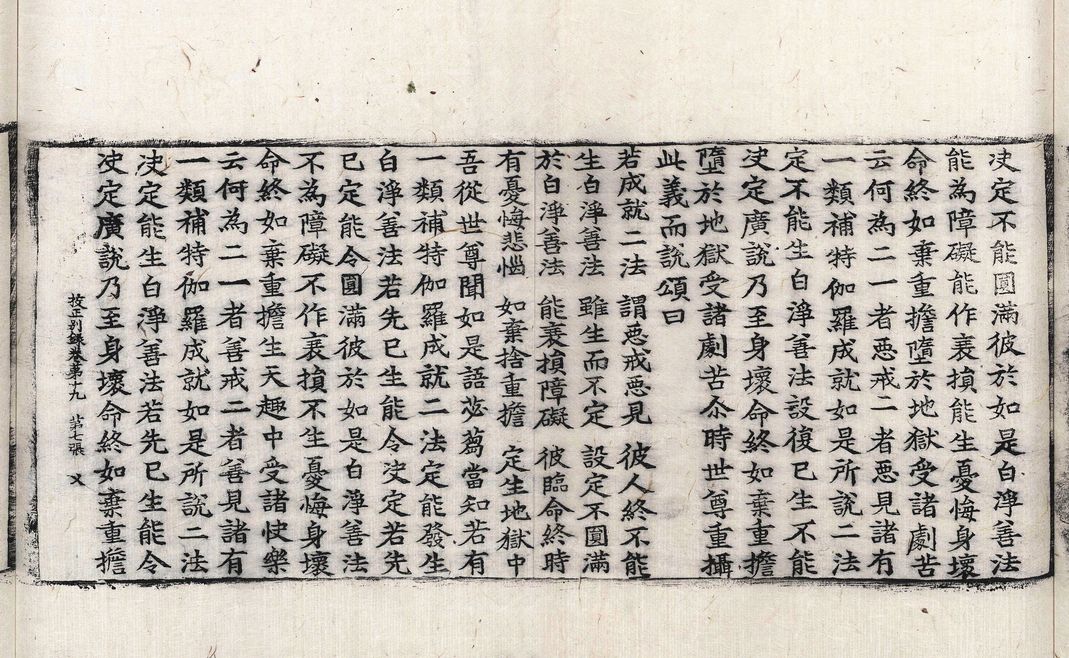 决定不能圓滿彼於如是白淨善法
能為障礙能作衰損能生憂悔身壞
命終如棄重擔墮於地獄受諸劇苦
云何為二一者惡戒二者惡見諸有
一類補特伽羅成就如是所說二法
定不能生白淨善法設復已生不能
决定廣說乃至身壞命終如棄重擔
墮於地獄受諸劇苦尒時世尊重攝
此義而說頌曰
若成就二法　謂惡戒惡見　彼人終不能
生白淨善法　雖生而不定　設定不圓滿
於白淨善法　能衰損障礙　彼臨命終時
有憂悔悲惱　如棄捨重擔　定生地獄中
吾從世尊聞如是語苾蒭當知若有
一類補特伽羅成就二法定能發生
白淨善法若先已生能令决定若先
已定能令圓滿彼於如是白淨善法
不為障礙不作衰損不生憂悔身壞
命終如棄重擔生天趣中受諸快樂
云何為二一者善戒二者善見諸有
一類補特伽羅成就如是所說二法
决定能生白淨善法若先已生能令
决定廣說乃至身壞命終如棄重擔
校正別錄卷第十九　第七張